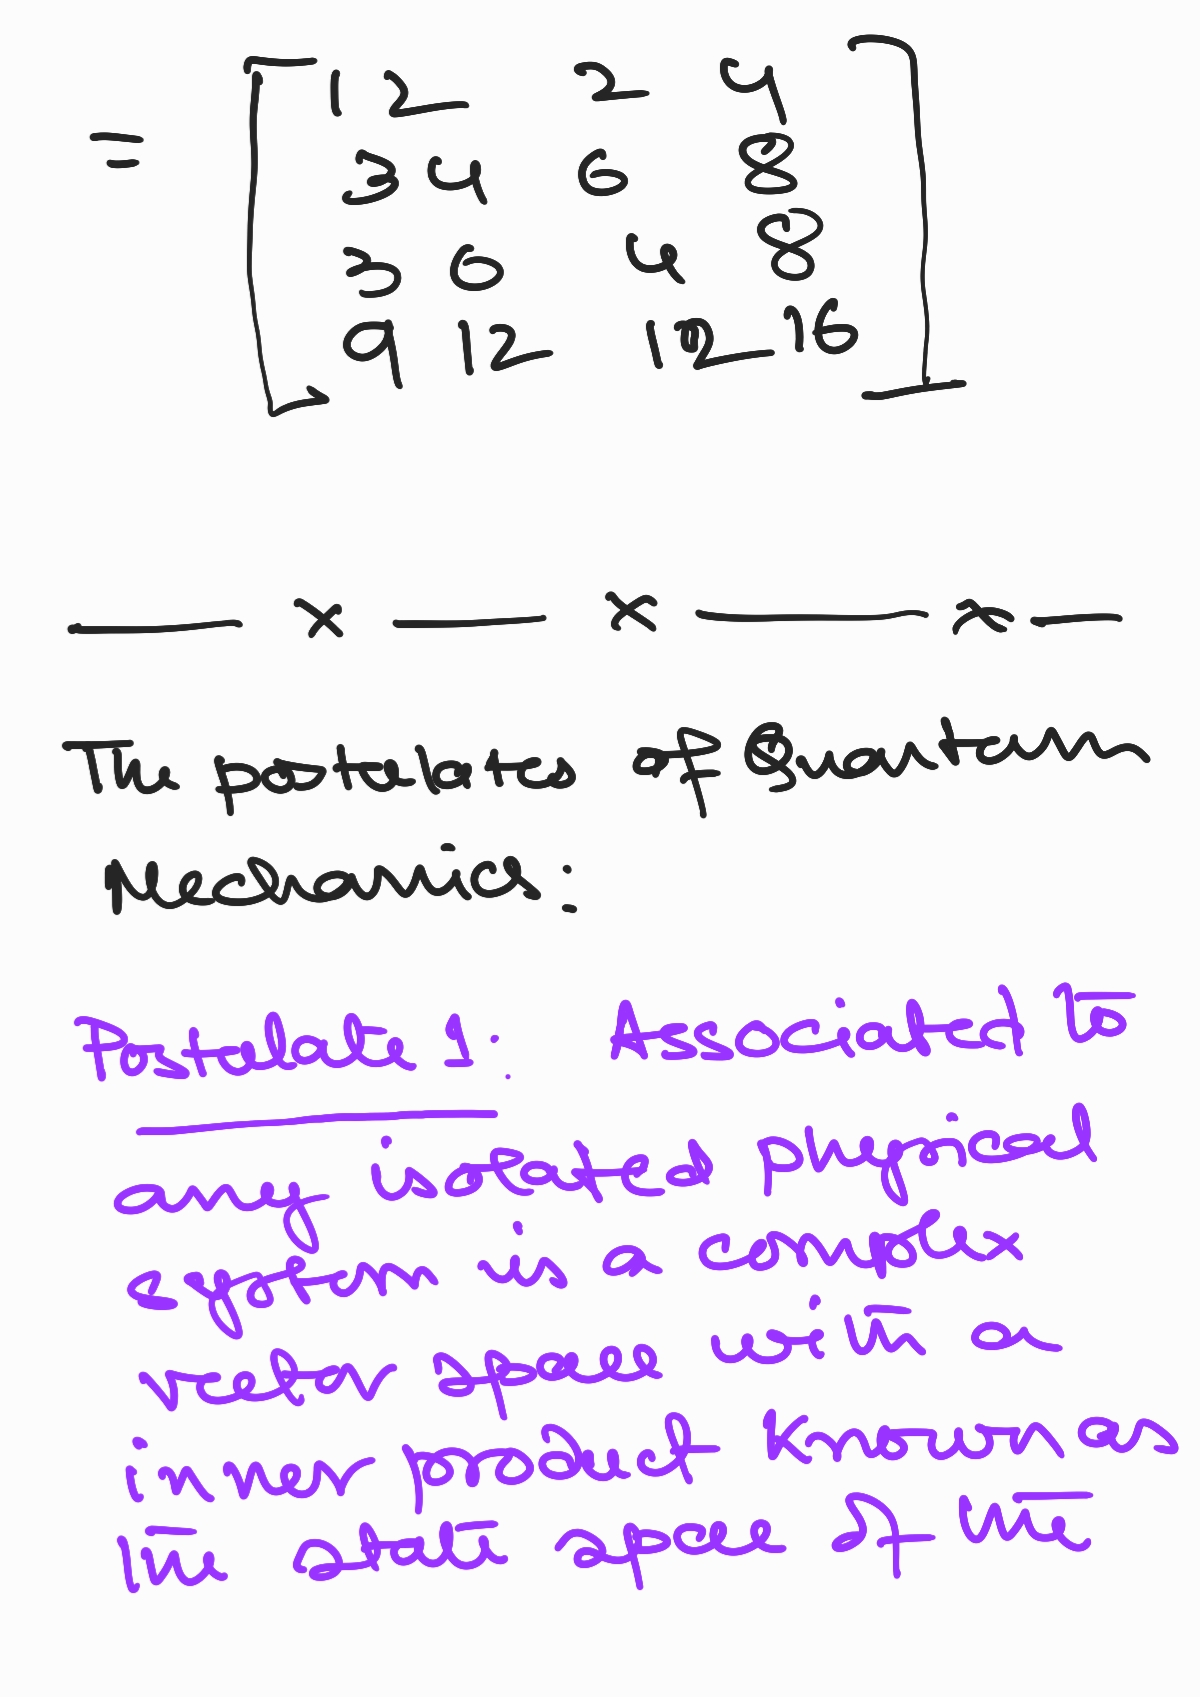 = [ 1 2 2 4
3 4 6 8
3 6 4 8
9 12 12 16 ]
— x — x — x —
The postulates of Quantum
Mechanics:
Postulate 1: Associated to
any isolated physical
system is a complex
vector space with a
inner product known as
the state space of the